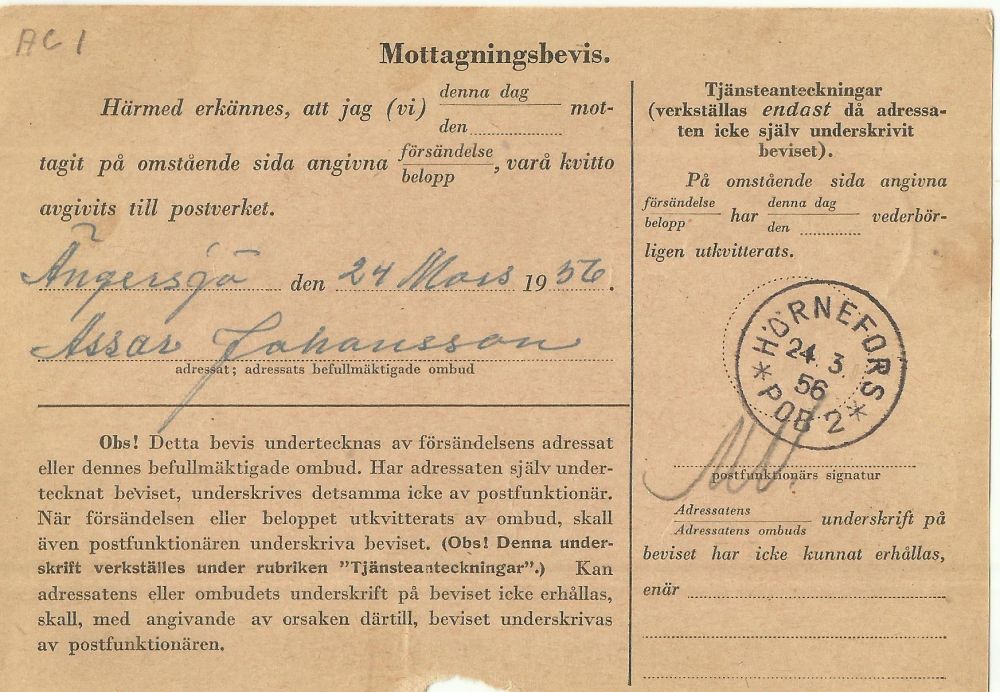 AC 1
Mottagningsbevis.
Härmed erkännes, att jag (vi) denna dag mot-
den
tagit på omstående sida angivna försändelse, varå kvitto
belopp
avgivits till postverket.
Ängersjö den 24 Mars 1956.
Assar Johansson
adressat; adressats befullmäktigade ombud
Obs! Detta bevis undertecknas av försändelsens adressat
eller dennes befullmäktigade ombud. Har adressaten själv under-
tecknat beviset, underskrives detsamma icke av postfunktionär.
När försändelsen eller beloppet utkvitterats av ombud, skall
även postfunktionären underskriva beviset. (Obs! Denna under-
skrift verkställes under rubriken "Tjänsteanteckningar".) Kan
adressatens eller ombudets underskrift på beviset icke erhållas,
skall, med angivande av orsaken därtill, beviset underskrivas
av postfunktionären.
Tjänsteanteckningar
(verkställas endast då adressa-
ten icke själv underskrivit
beviset).
På omstående sida angivna
försändelse har denna dag vederbör-
belopp den
ligen utkvitterats.
HÖRNEFORS
24. 3.
56
* POB 2 *
postfunktionärs signatur
Adressatens underskrift på
Adressatens ombuds
beviset har icke kunnat erhållas,
enär